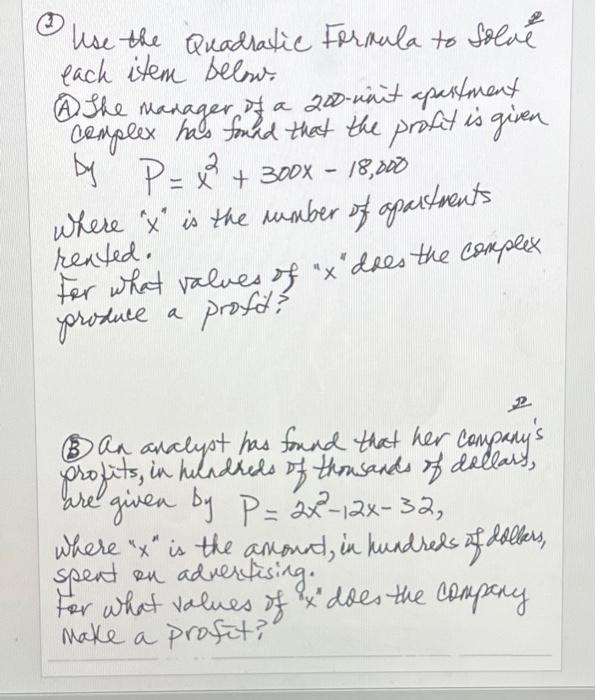 ③ Use the Quadratic Formula to Solve
each item below.
Ⓐ The manager of a 200-unit apartment
complex has found that the profit is given
by P = x² + 300x - 18,000
where "x" is the number of apartments
rented.
For what values of "x" does the complex
produce a profit?
Ⓑ An analyst has found that her company's
profits, in hundreds of thousands of dollars,
are given by P = 2x²-12x-32,
where "x" is the amount, in hundreds of dollars,
spent on advertising.
For what values of "x" does the company
make a profit?